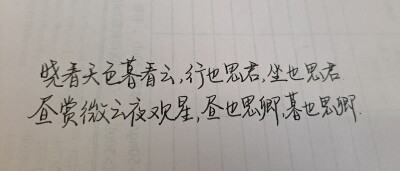 晓看天色暮看云,行也思君,坐也思君
昼赏微云夜观星,昼也思卿,暮也思卿.